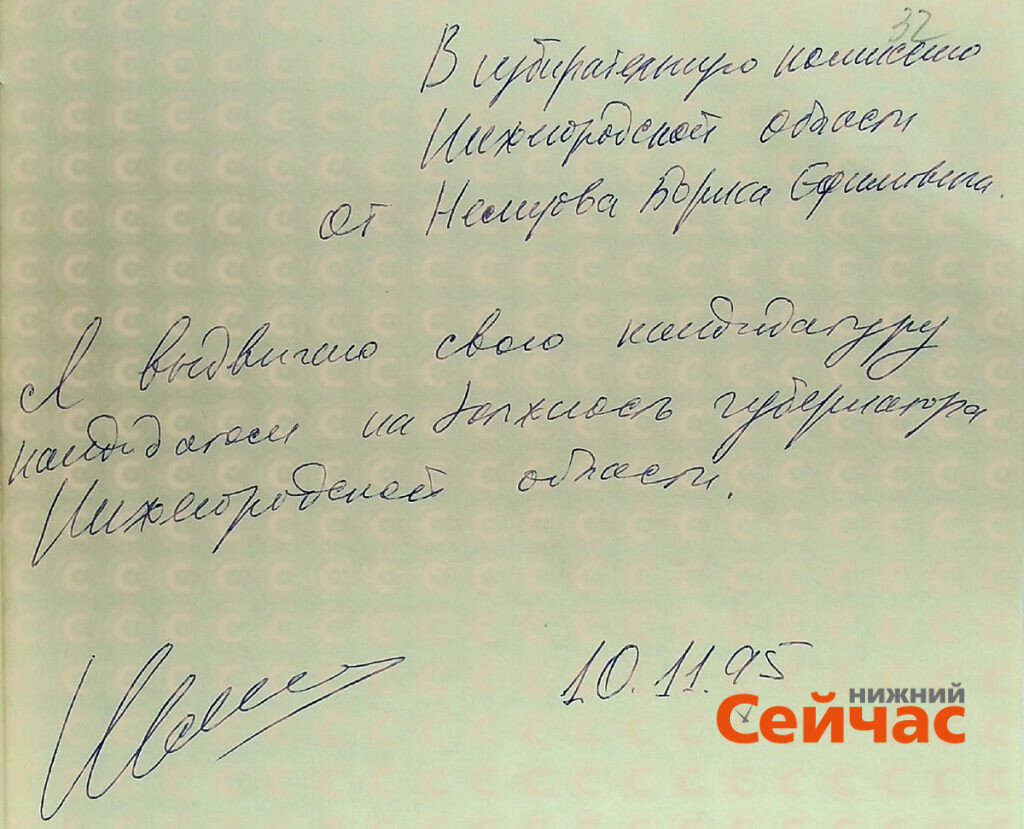 32
В избирательную комиссию
Нижегородской области
от Немцова Бориса Ефимовича.
Я выдвигаю свою кандидатуру
кандидатом на должность губернатора
Нижегородской области.
10.11.95
НИЖНИЙ
Сейчас